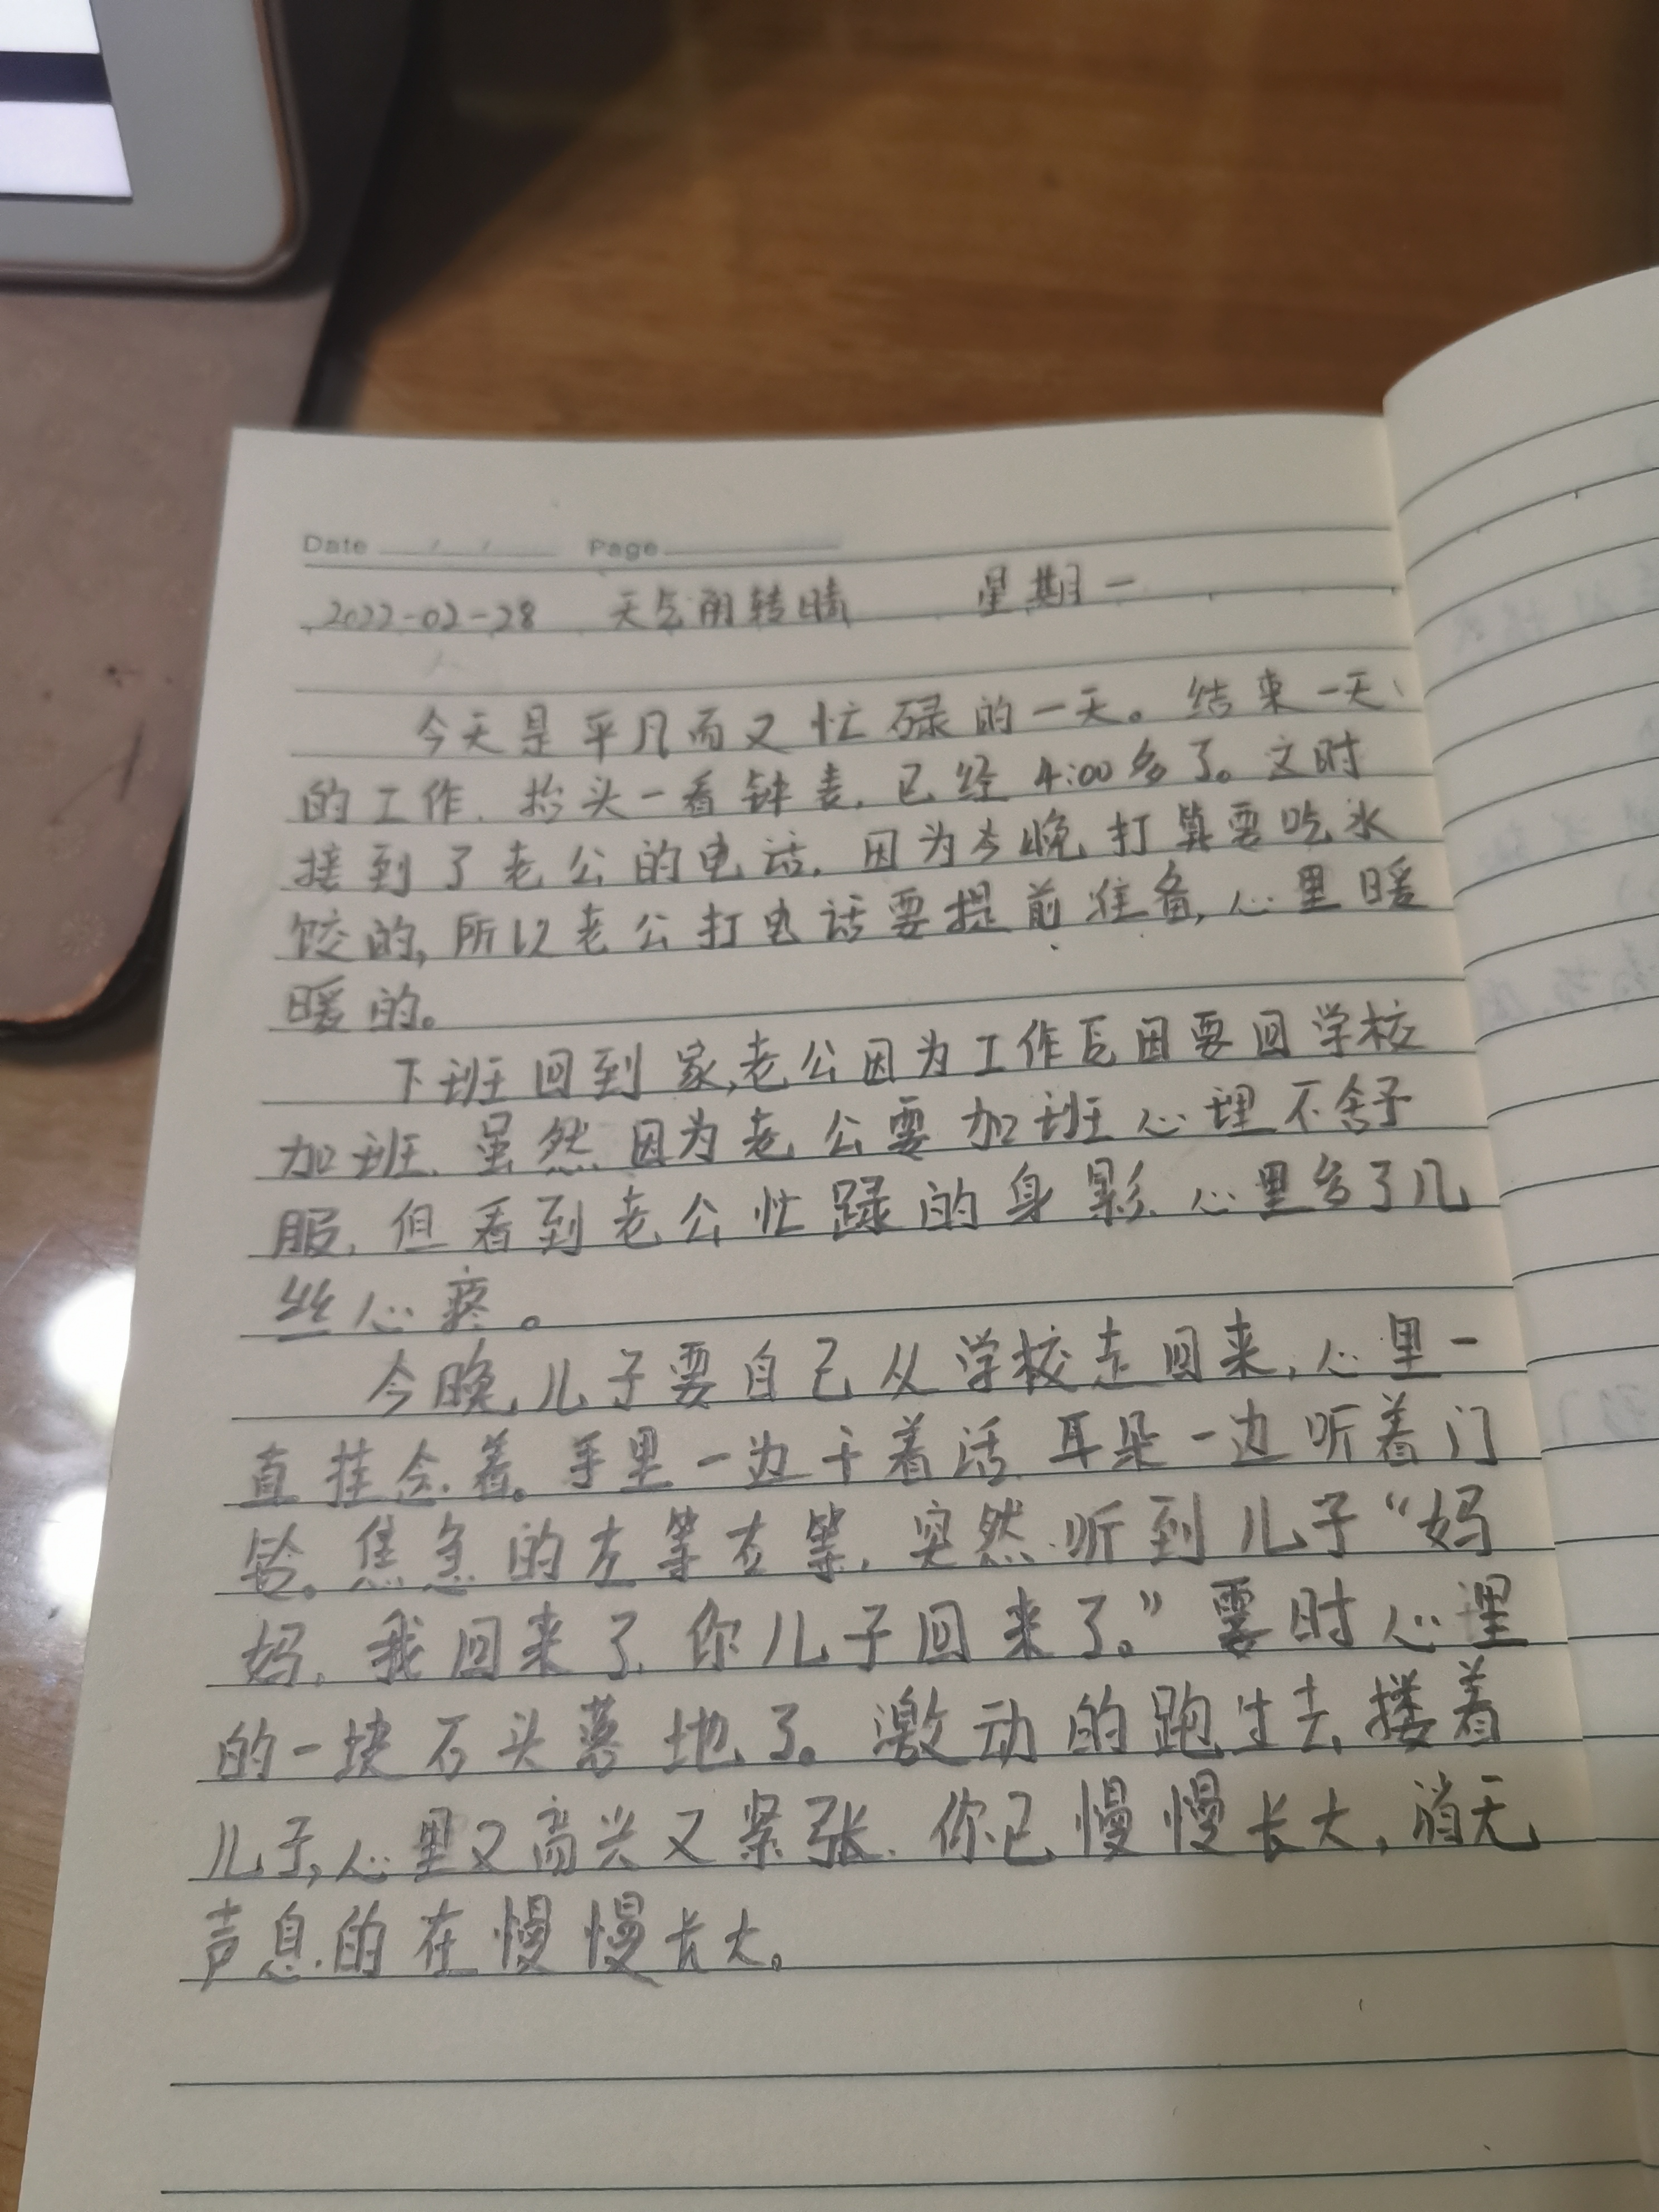 Date / / Page
2022-02-28 天气阴转晴 星期一
今天是平凡而又忙碌的一天。结束一天
的工作,抬头一看钟表,已经4:00多了。这时
接到了老公的电话,因为今晚打算要吃水
饺的,所以老公打电话要提前准备,心里暖
暖的。
下班回到家,老公因为工作原因要回学校
加班,虽然因为老公要加班心理不舒
服,但看到老公忙碌的身影,心里多了几
丝心疼。
今晚,儿子要自己从学校走回来,心里一
直挂念着。手里一边干着活,耳朵一边听着门
铃。焦急的左等右等,突然听到儿子“妈
妈,我回来了,你儿子回来了。”霎时心里
的一块石头落地了。激动的跑过去,搂着
儿子,心里又高兴又紧张,你已慢慢长大,悄无
声息的在慢慢长大。